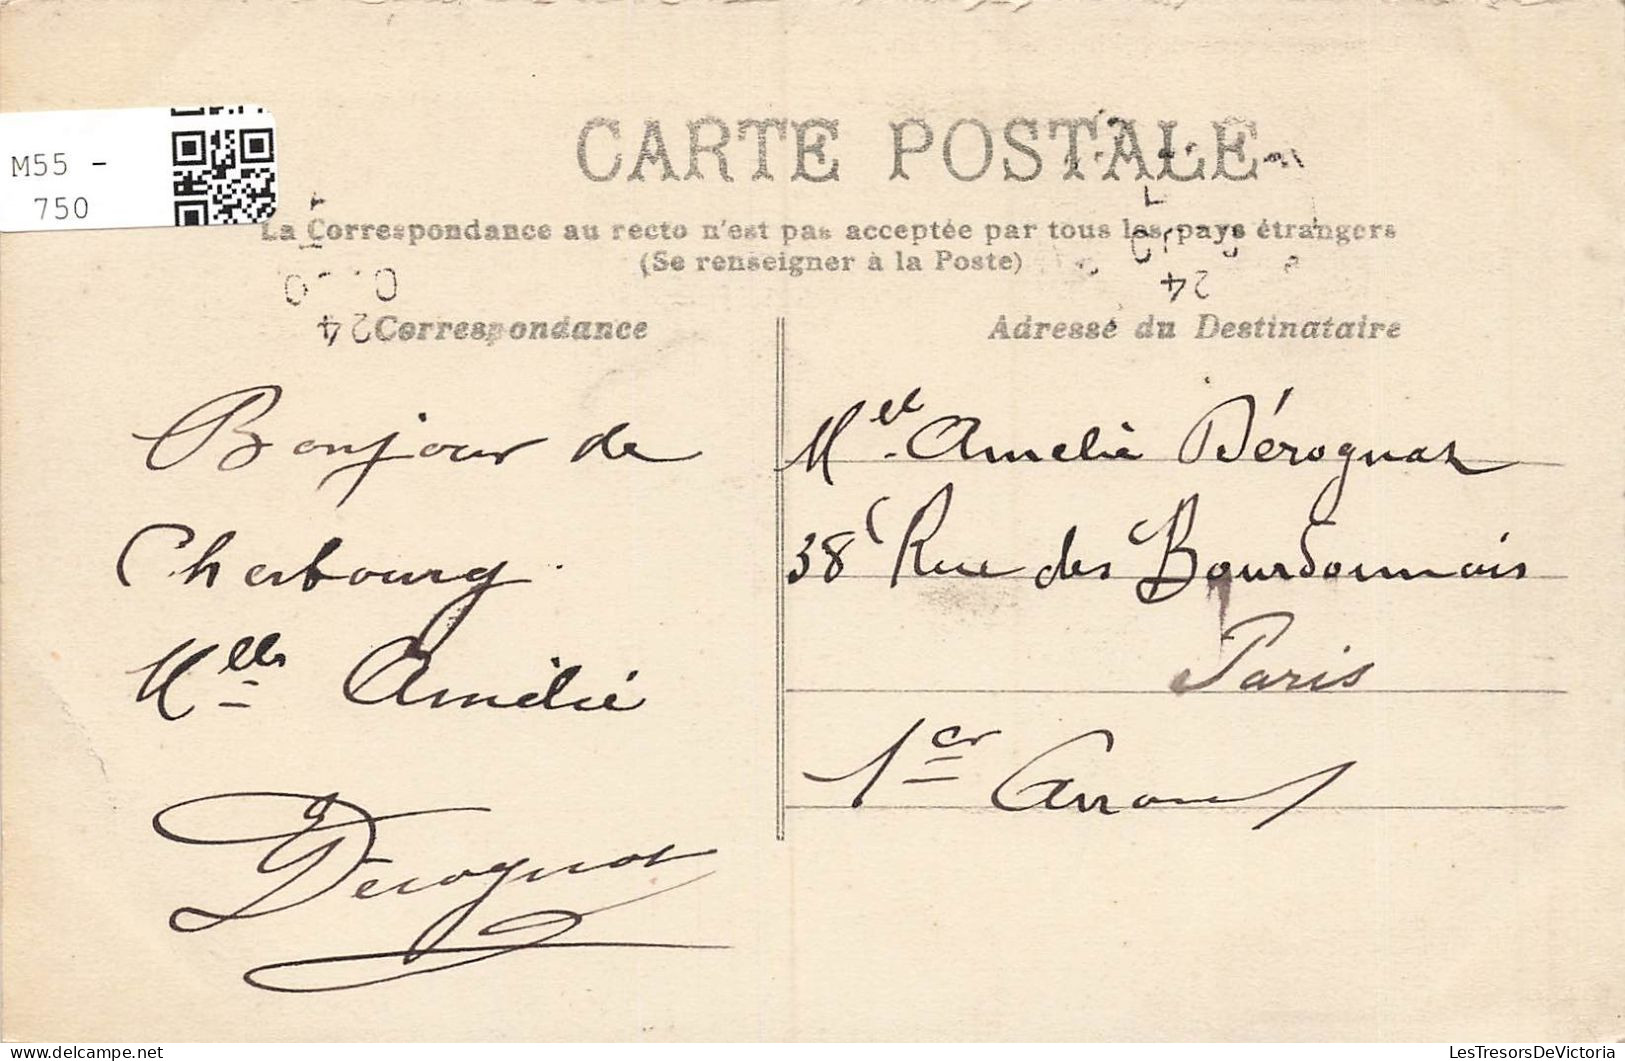 M55 -
750
CARTE POSTALE
La Correspondance au recto n'est pas acceptée par tous les pays étrangers
(Se renseigner à la Poste)
Correspondance
Bonjour de
Cherbourg.
Mlle Amélie
Derognat
Adresse du Destinataire
Mel Amelie Dérognat
38 Rue des Bourdonnais
Paris
1er Arrond
LesTresorsDeVictoria